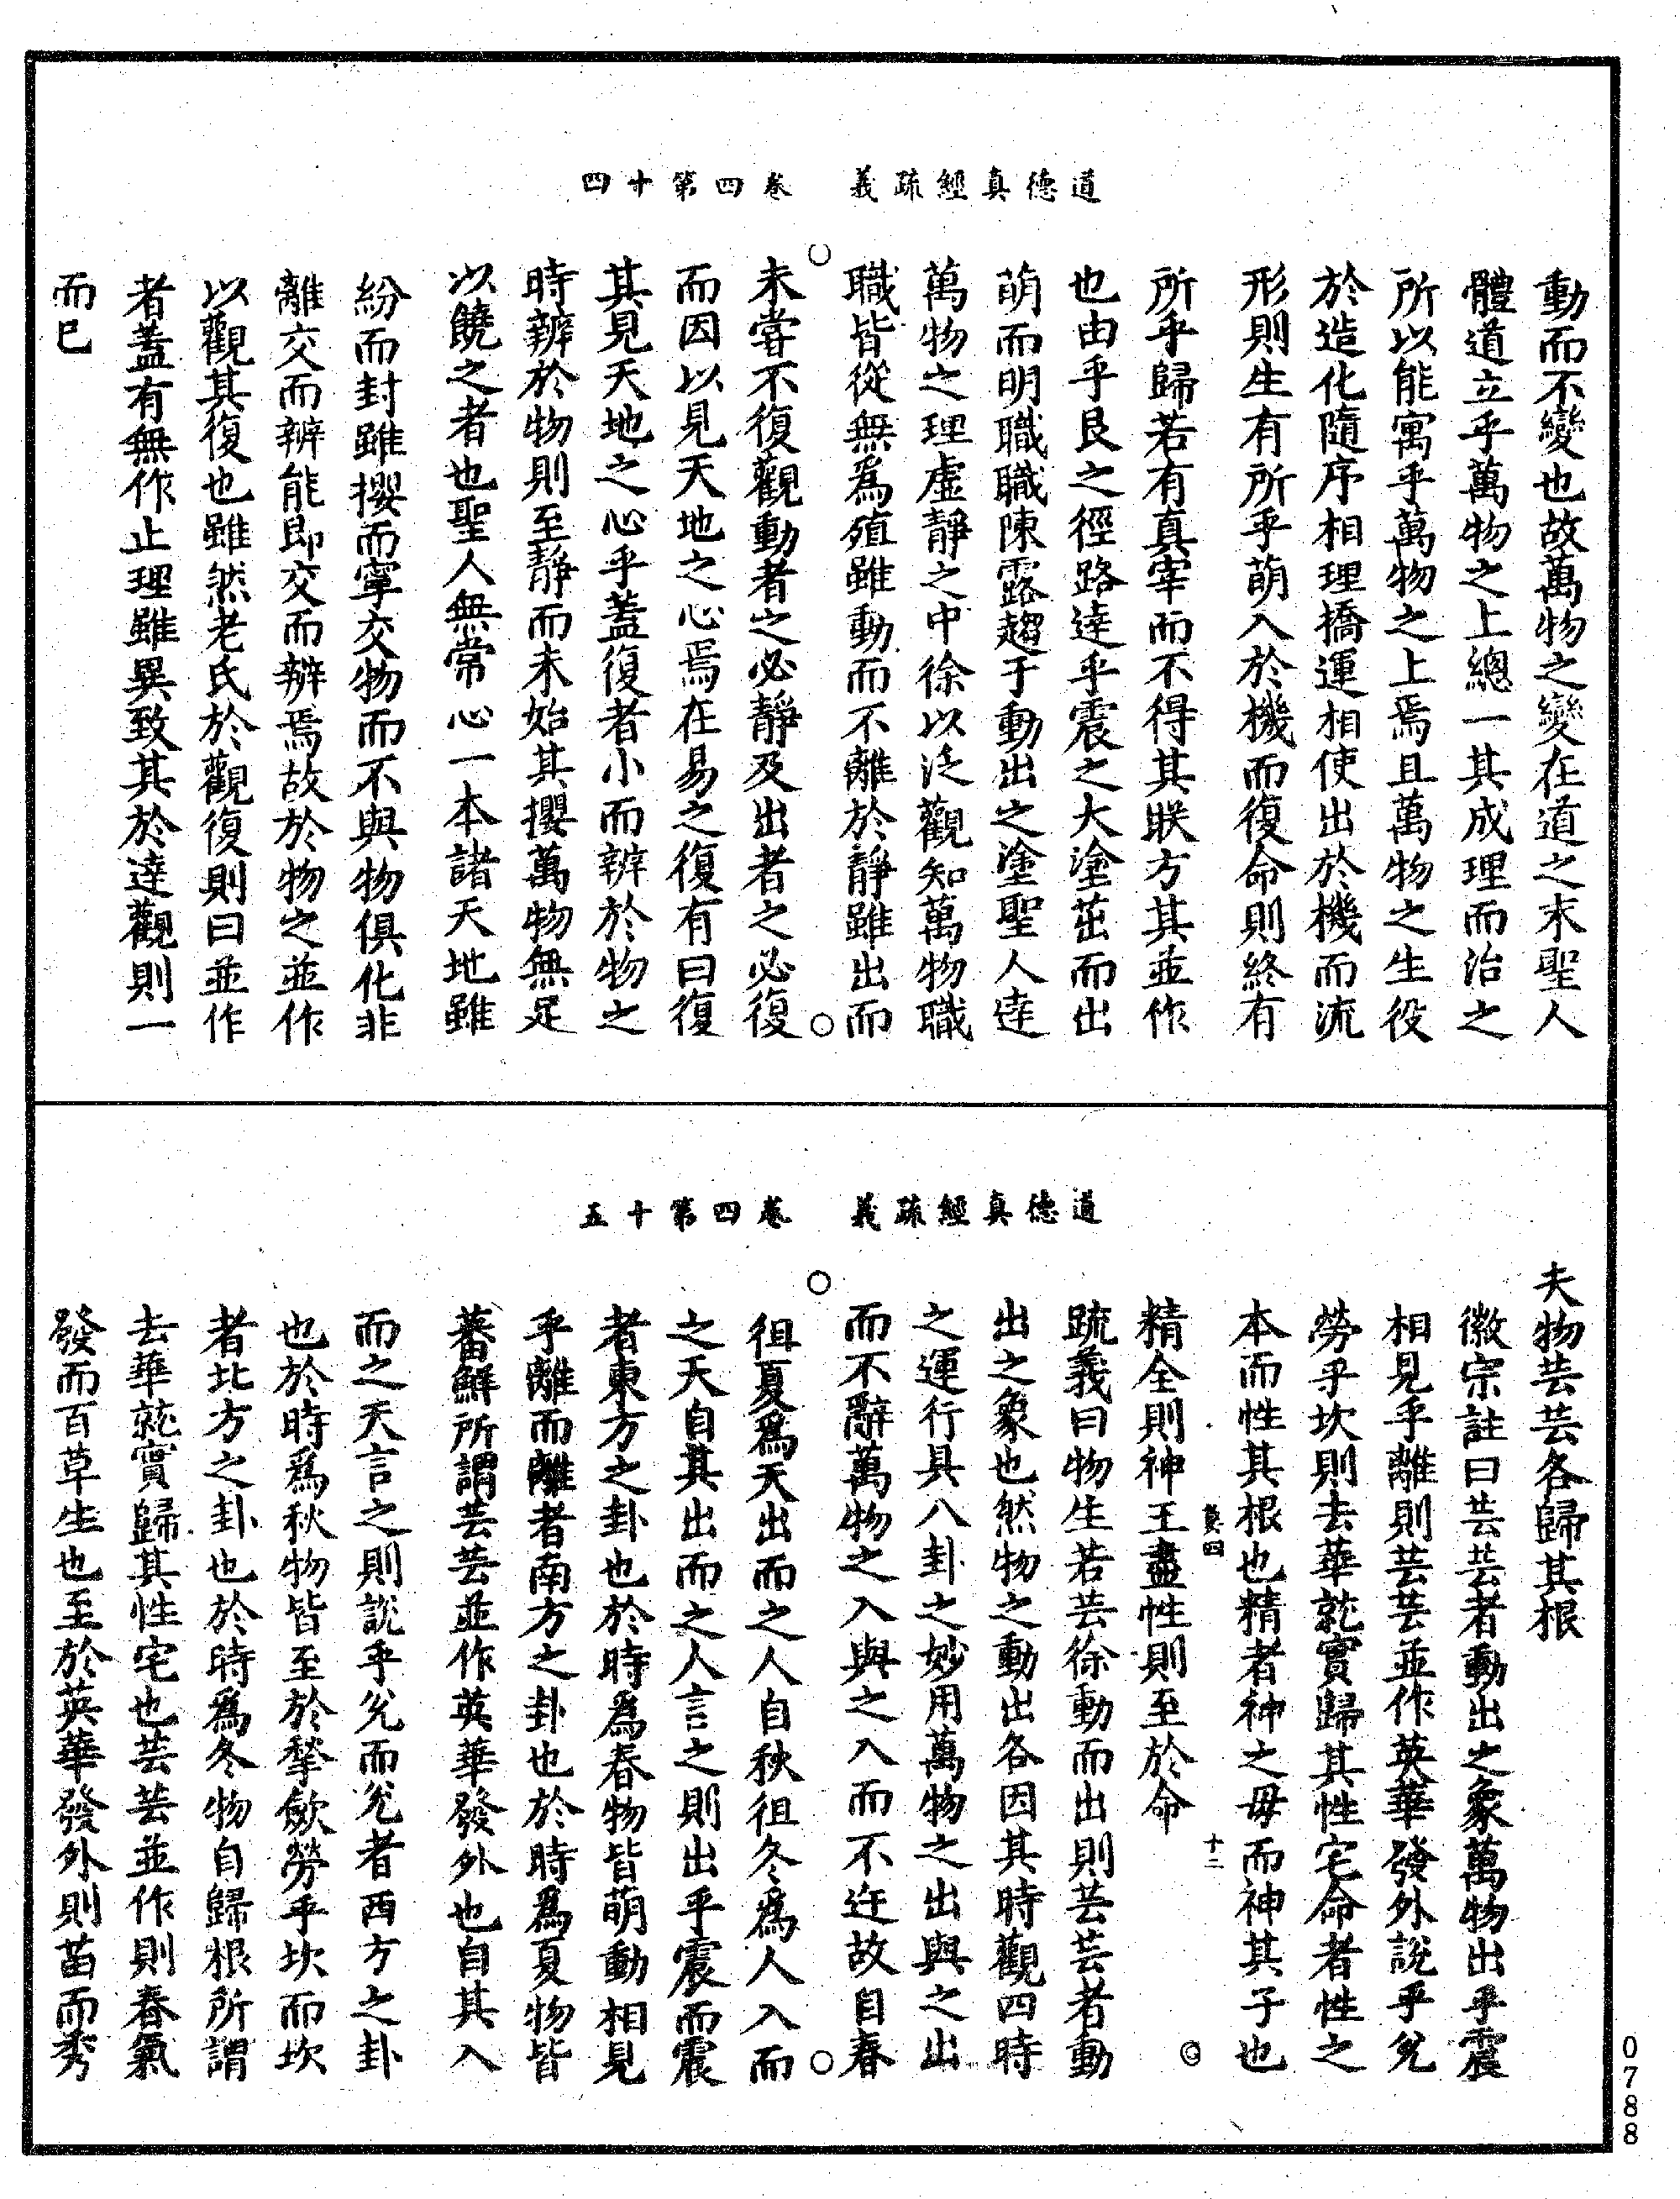 道德真經疏義　卷四第十四
動而不變也故萬物之變在道之末聖人
體道立乎萬物之上總一其成理而治之
所以能寓乎萬物之上焉且萬物之生役
於造化隨序相理橋運相使出於機而流
形則生有所乎萌入於機而復命則終有
所乎歸若有真宰而不得其眹方其並作
也由乎艮之徑路達乎震之大塗茁而出
萌而明職職陳露趨于動出之塗聖人達
萬物之理虛靜之中徐以泛觀知萬物職
職皆從無為殖雖動而不離於靜雖出而
未嘗不復觀動者之必靜及出者之必復
而因以見天地之心焉在易之復有曰復
其見天地之心乎蓋復者小而辨於物之
時辨於物則至靜而未始其攖萬物無足
以饒之者也聖人無常心一本諸天地雖
紛而封雖攖而寧交物而不與物俱化非
離交而辨能即交而辨焉故於物之並作
以觀其復也雖然老氏於觀復則曰並作
者蓋有無作止理雖異致其於達觀則一
而已
道德真經疏義　卷四第十五
夫物芸芸各歸其根
徽宗註曰芸芸者動出之象萬物出乎震
相見乎離則芸芸並作英華發外說乎兌
勞乎坎則去華就實歸其性宅命者性之
本而性其根也精者神之母而神其子也
精全則神王盡性則至於命
疏義曰物生若芸徐動而出則芸芸者動
出之象也然物之動出各因其時觀四時
之運行具八卦之妙用萬物之出與之出
而不辭萬物之入與之入而不迕故自春
徂夏為天出而之人自秋徂冬為人入而
之天自其出而之人言之則出乎震而震
者東方之卦也於時為春物皆萌動相見
乎離而離者南方之卦也於時為夏物皆
蕃鮮所謂芸芸並作英華發外也自其入
而之天言之則說乎兌而兌者西方之卦
也於時為秋物皆至於揫斂勞乎坎而坎
者北方之卦也於時為冬物自歸根所謂
去華就實歸其性宅也芸芸並作則春氣
發而百草生也至於英華發外則苗而秀
十二
0788